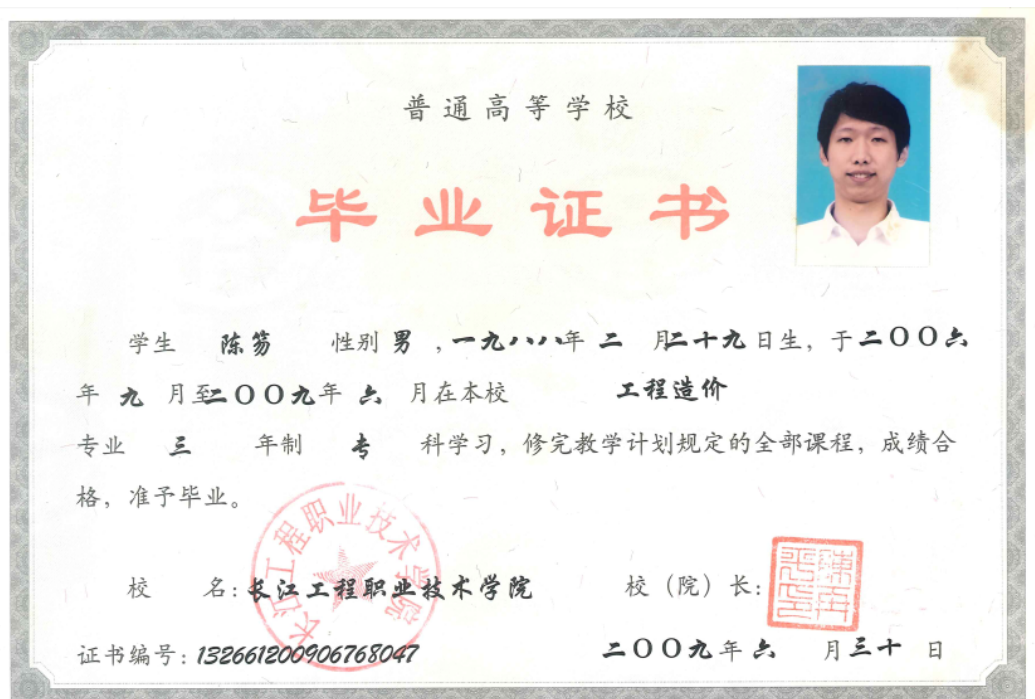 普通高等学校
毕业证书
学生 陈笏 性别 男 ，一九八八年 二 月二十九日生，于二〇〇六
年 九 月至二〇〇九年 六 月在本校 工程造价
专业 三 年制 专 科学习，修完教学计划规定的全部课程，成绩合
格，准予毕业。
长江工程职业技术学院
校 名：长江工程职业技术学院 校（院）长：
证书编号：132661200906768047 二〇〇九年 六 月三十 日